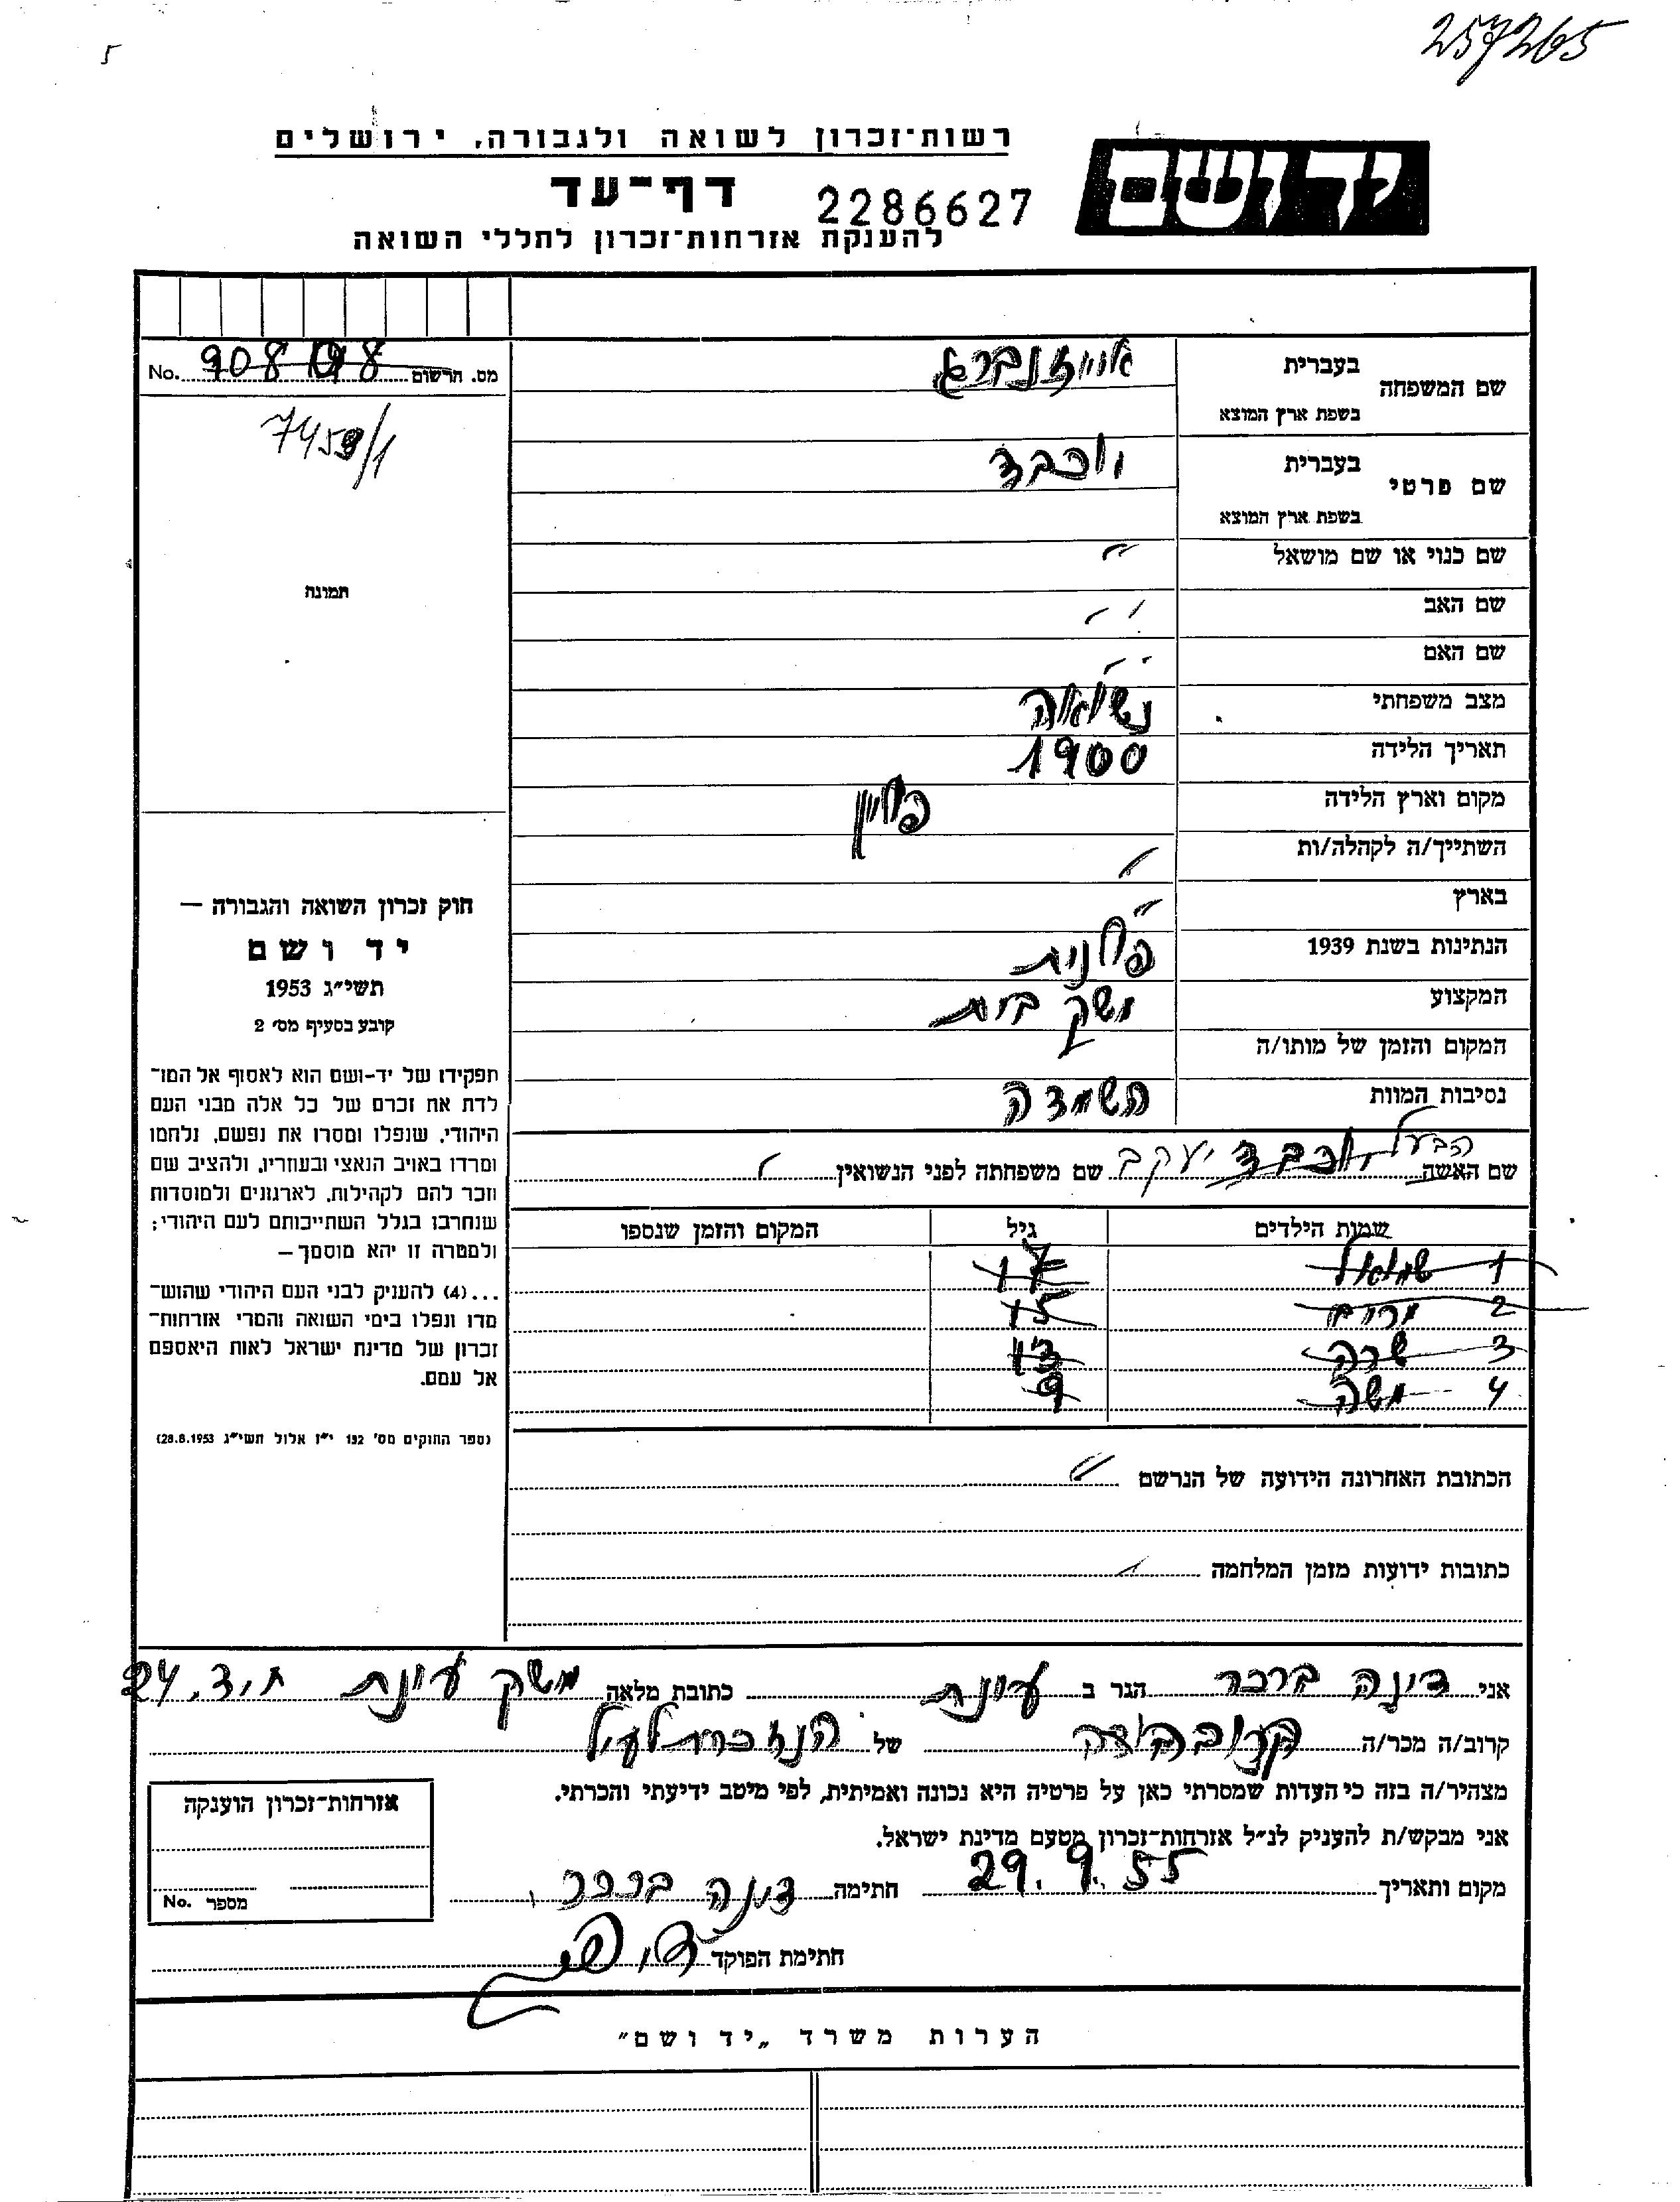 257265
5
רשות־זכרון לשואה ולגבורה, ירושלים
יד ושם
דף־עד
2286627
להענקת אזרחות־זכרון לחללי השואה
מס. הרשום No. 90808
7459/1
תמונה
שם המשפחה בעברית אייזנברג
בשפת ארץ המוצא
שם פרטי בעברית יוכבד
בשפת ארץ המוצא
שם כנוי או שם מושאל
שם האב
שם האם
מצב משפחתי נשואה
תאריך הלידה 1900
מקום וארץ הלידה פולין
השתייך/ה לקהלה/ות
בארץ
הנתינות בשנת 1939 פולנית
המקצוע משק בית
המקום והזמן של מותו/ה
נסיבות המוות השמדה
שם האשה הבעל יוכבד יעקב שם משפחתה לפני הנשואין
שמות הילדים גיל המקום והזמן שנספו
1 שמואל 17
2 מרים 15
3 שרה 13
4 משה 9
הכתובת האחרונה הידועה של הנרשם
כתובות ידועות מזמן המלחמה
חוק זכרון השואה והגבורה —
יד ושם
תשי״ג 1953
קובע בסעיף מס׳ 2
תפקידו של יד-ושם הוא לאסוף אל המו־
לדת את זכרם של כל אלה מבני העם
היהודי, שנפלו ומסרו את נפשם, נלחמו
ומרדו באויב הנאצי ובעוזריו, ולהציב שם
וזכר להם לקהילות, לארגונים ולמוסדות
שנחרבו בגלל השתייכותם לעם היהודי;
ולמטרה זו יהא מוסמך—
...(4) להעניק לבני העם היהודי שהוש־
מדו ונפלו בימי השואה והמרי אזרחות־
זכרון של מדינת ישראל לאות היאספם
אל עמם.
(ספר החוקים מס׳ 132 י״ז אלול תשי״ג 28.8.1953)
אני דינה ברכר הגר ב עינת כתובת מלאה משק עינת ח.ד. 24
קרוב/ה מכר/ה קרובה של הנזכרת לעיל
מצהיר/ה בזה כי העדות שמסרתי כאן על פרטיה היא נכונה ואמיתית, לפי מיטב ידיעתי והכרתי.
אני מבקש/ת להעניק לנ״ל אזרחות־זכרון מטעם מדינת ישראל.
מקום ותאריך 29.9.55 חתימה דינה ברכר
חתימת הפוקד
אזרחות־זכרון הוענקה
מספר No.
הערות משרד „יד ושם״